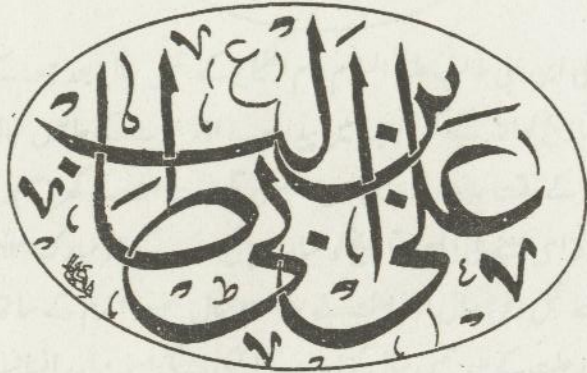 علي بن ابي طالب (ع)